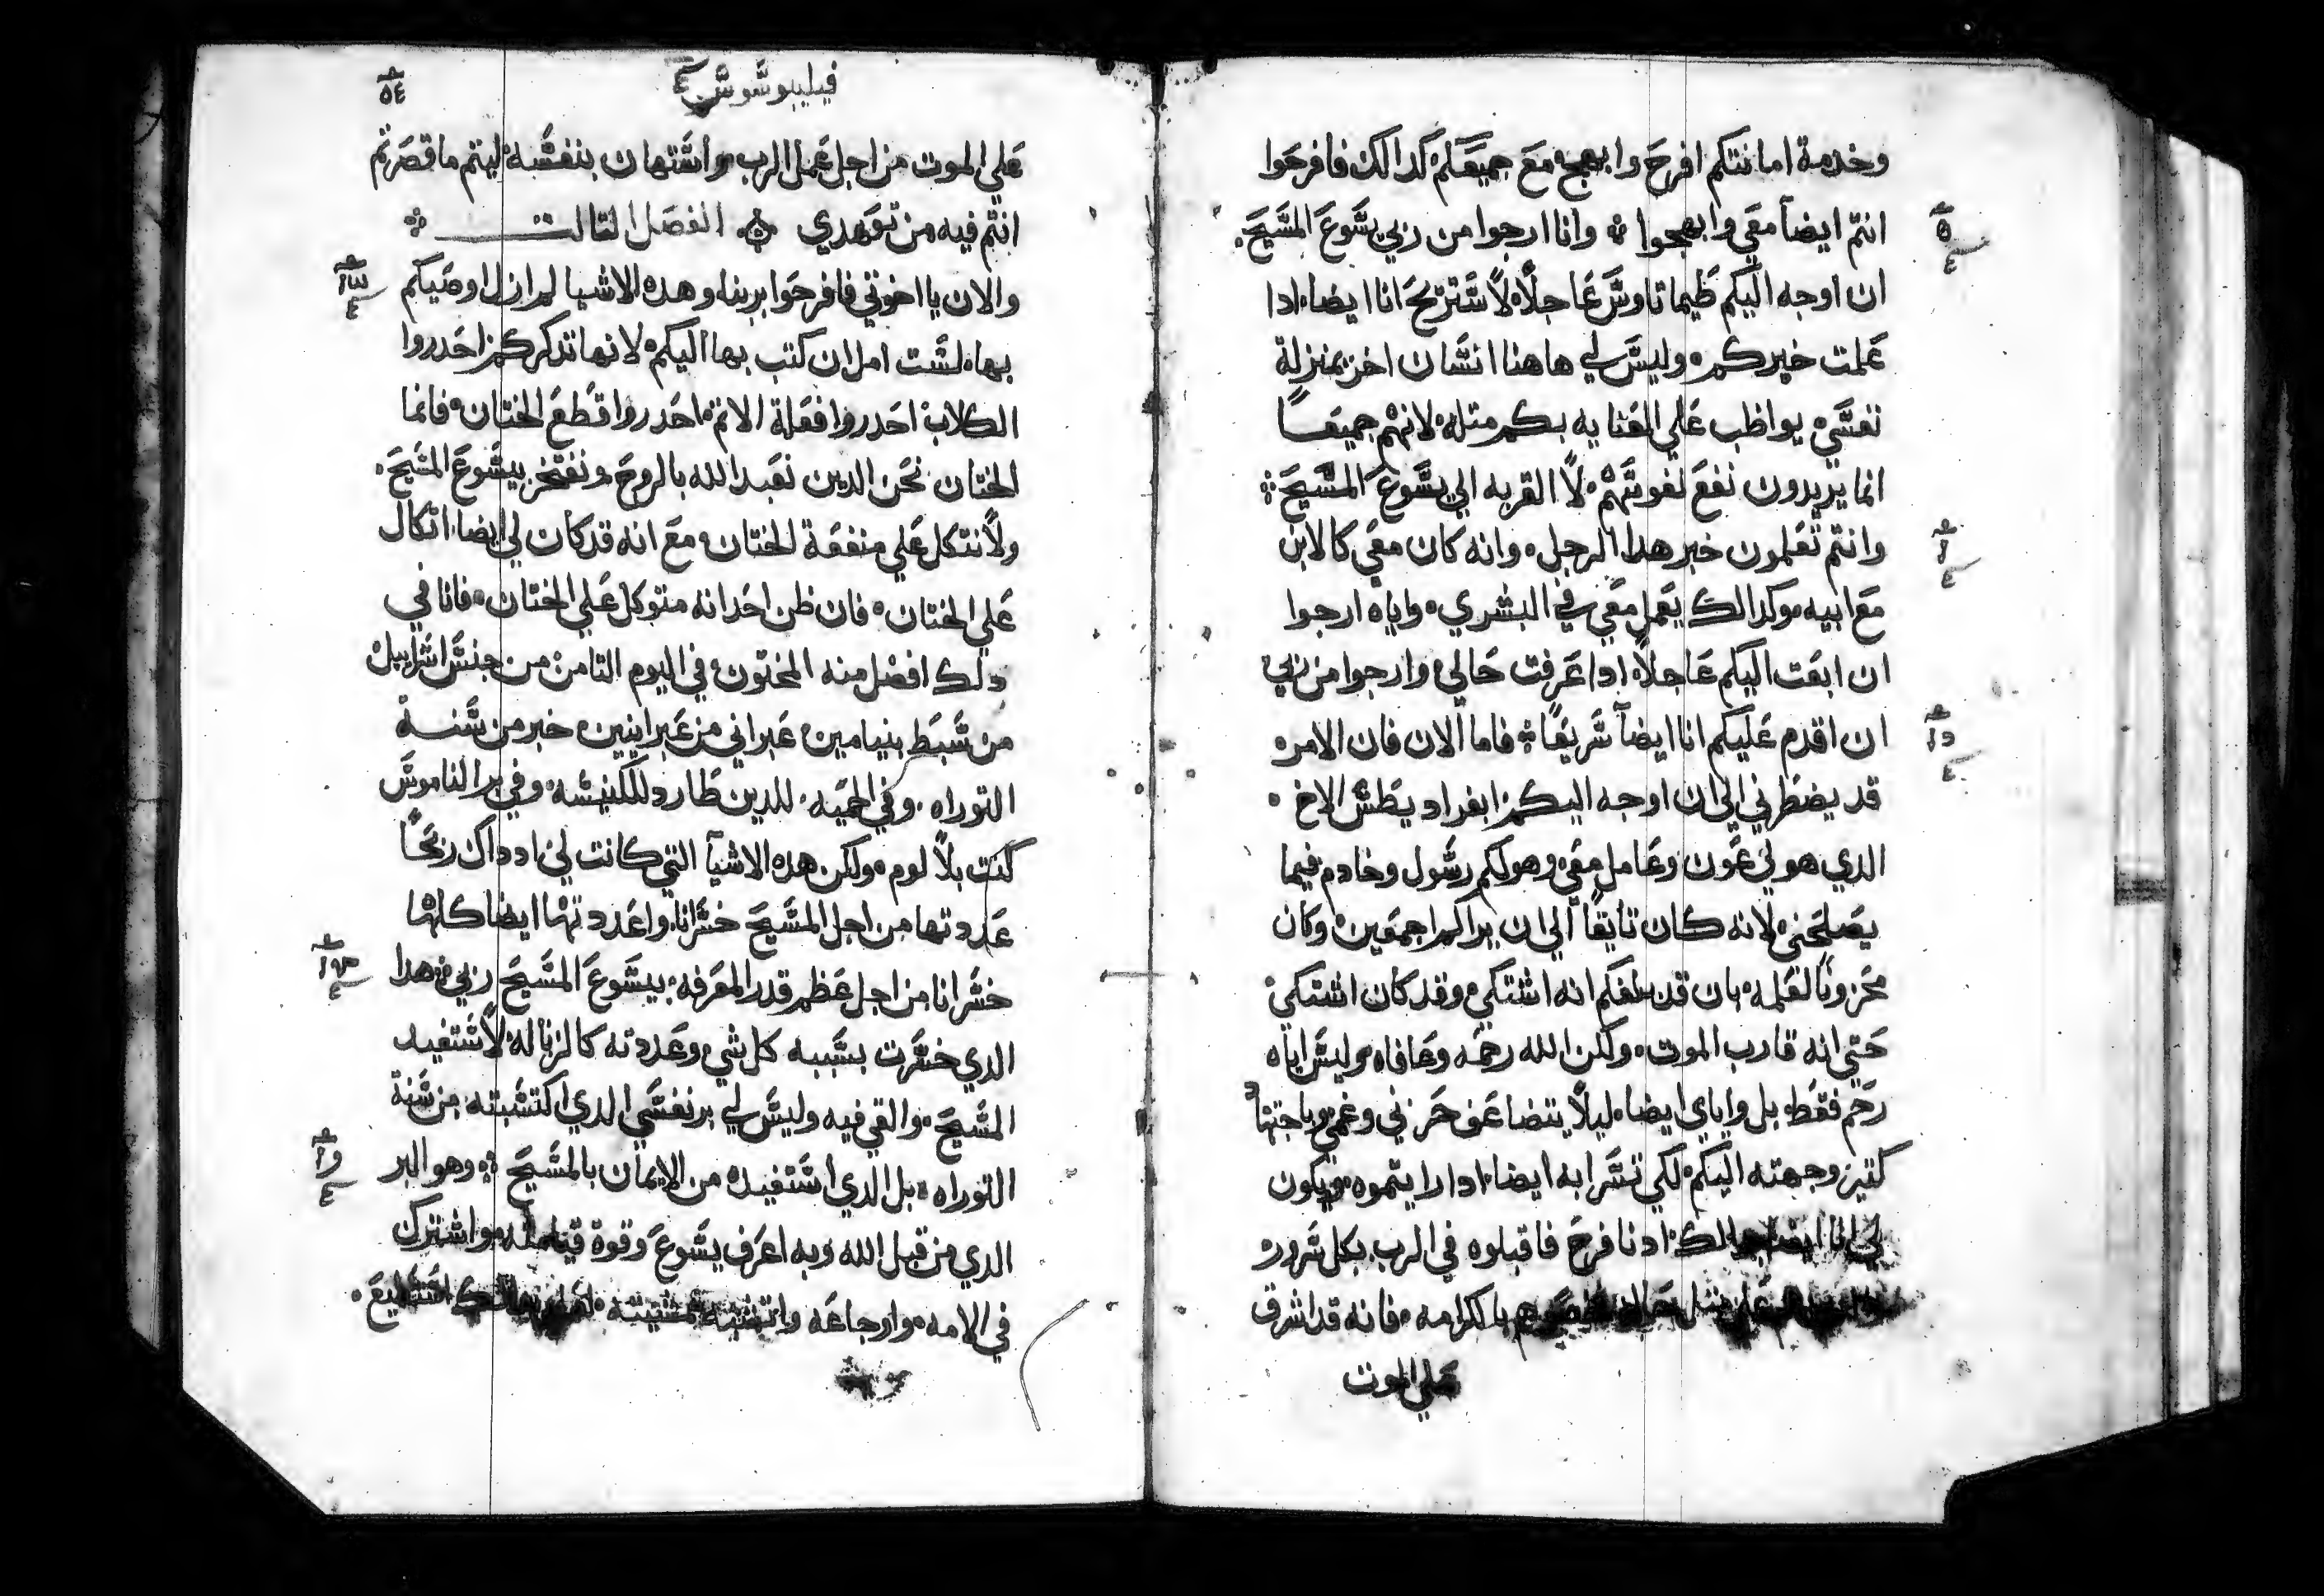 وخدمة امانتكم افرح وابهج مع جميعكم كدالك فافرحوا
انتم ايضاً معي وابهجوا وانا ارجوا من ربي يشوع المشيح
ان اوجه اليكم طيماتاوش عاجلاً لاشتريح انا ايضا ادا
علمت خبركم وليش لي هاهنا انشان اخر بمنزلة
نفشي يواظب علي العنايه بكم مثله لانهم جميعاً
انما يريدون نفع نفوشهم لا القربه الي يشوع المشيح
وانتم تعلمون خبر هدا الرجل وانه كان معي كالابن
مع ابيه وكدالك يعمل معي في البشري واياه ارجوا
ان ابعت اليكم عاجلاً ادا عرفت حالي وارجوا من ربي
ان اقدم عليكم انا ايضاً شريعاً فاما الان فان الامره
قد يضطرني الي ان اوجه اليكم ابفراديطش الاخ
الدي هو لي عون وعامل معي وهو لكم رشول وخادم فيما
يصلحني لانه كان تايقاً الي ان يراكم اجمعين وكان
محزوناً لعلمه بان قد بلغكم انه اشتكي وقد كان اشتكي
حتي انه قارب الموت ولكن الله رحمه وعافاه وليش اياه
رحم فقط بل واياي ايضا ليلاً يتضاعف حزني وغمي وباجتهاد
كتير وجهته اليكم لكي تشرا به ايضا ادا رايتموه ويكون
لي انا ايضا بدالك ادنا فرح فاقبلوه في الرب بكل شرور
بالكرامه فانه قد اشرف
علي الموت
فيليبوشوش
٥٤
علي الموت من اجل عمل الرب واشتهان بنفشه ليتم ما قصرتم
انتم فيه من تعهدي الفصل التالت
والان يا اخوتي فافرحوا بربنا وهده الاشيا لم ازل اوصيكم
بها لشت امل ان كتب بها اليكم لانها تدكركم احدروا
الكلاب احدروا فعلة الاتم احدروا قطع الختان فانما
الختان نحن الدين نعبد الله بالروح ونفتخر بيشوع المشيح
ولا نتكل علي منفعة الختان مع انه قد كان لي ايضا اتكال
علي الختان فان ظن احد انه متوكل علي الختان فانا في
دلك افضل منه المختون في اليوم التامن من جنش اشراييل
من شبط بنيامين عبراني من عبرانيين خبر من شنة
التوراه وفي الحميه للدين طارد للكنيشه وفي بر الناموش
كنت بلا لوم ولكن هده الاشيآ التي كانت لي ادداك ربحاً
عددتها من اجل المشيح خشرانا واعددتها ايضا كلها
خشرانا من اجل عظم قدر المعرفه بيشوع المشيح ربي هدا
الدي خشرت بشببه كل شي وعددته كالزباله لاشتفيد
المشيح والقي فيه وليش لي بر نفشي الدي اكتشبته من شنة
التوراه بل الدي اشتفيده من الايمان بالمشيح وهو البر
الدي من قبل الله وبه اعرف يشوع وقوة قيامته واشترك
في الامه واوجاعه